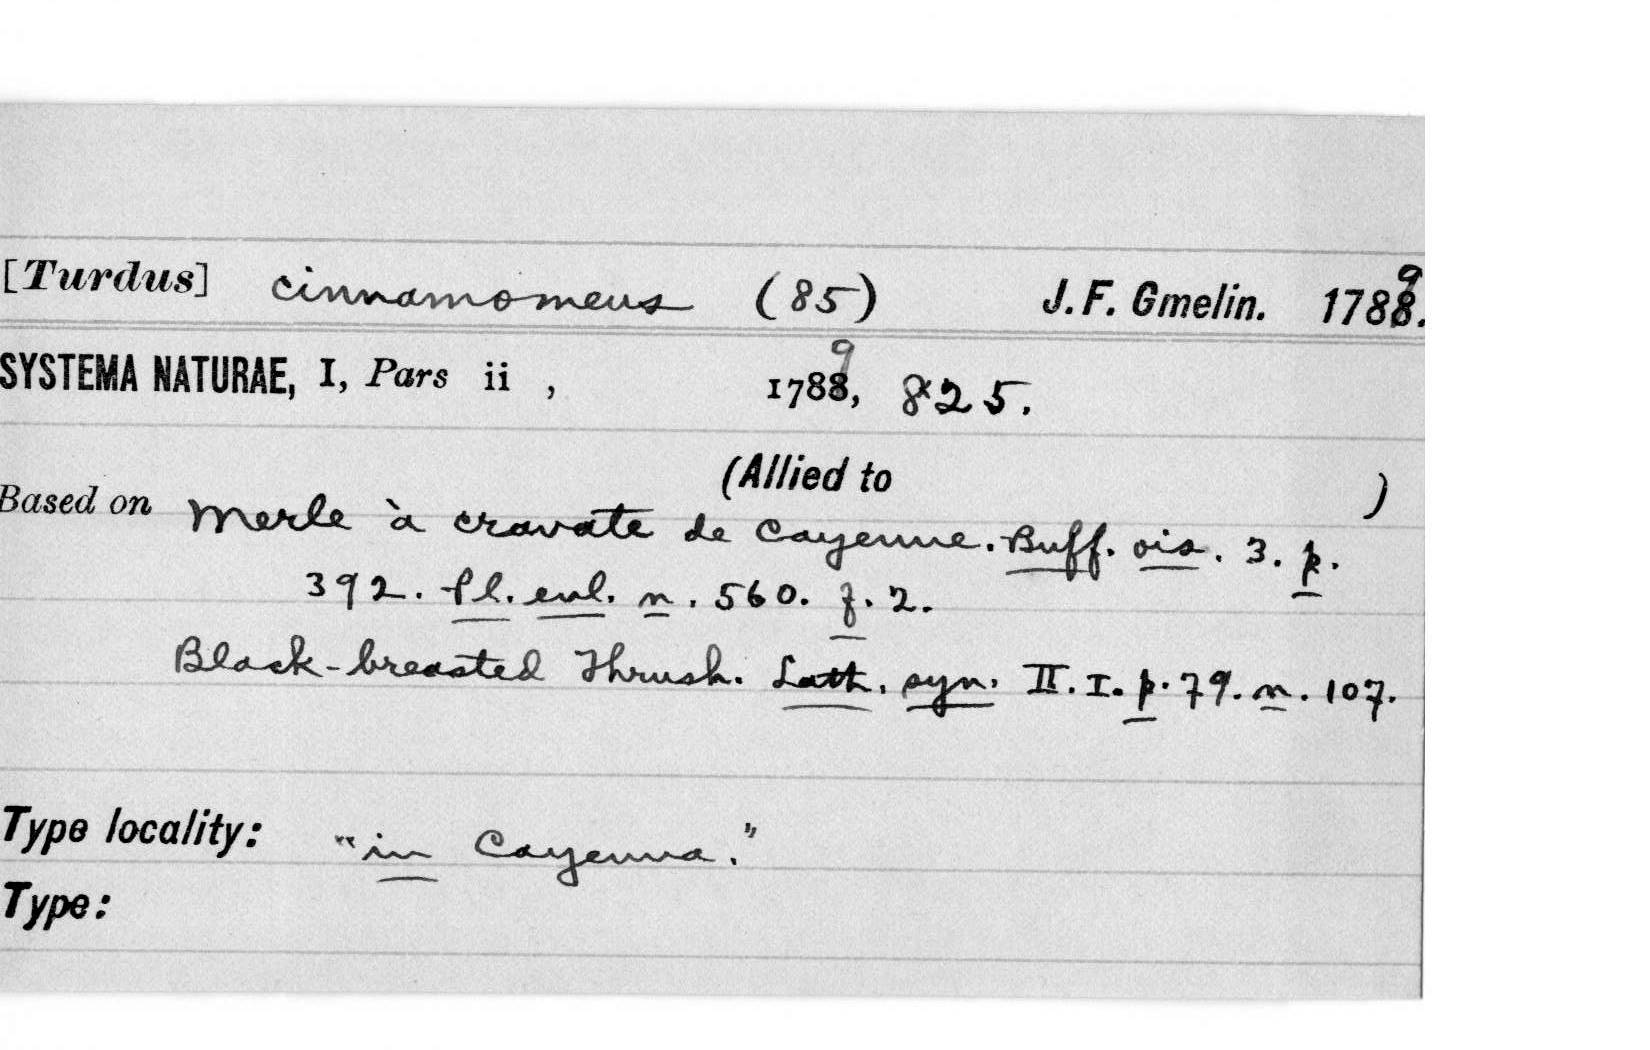 [Turdus] cinnamomeus (85) J. F. Gmelin. 1789.
SYSTEMA NATURAE, I, Pars ii , 1789, 825.
(Allied to )
Based on Merle à cravate de Cayenne. Buff. ois. 3. p.
392. Pl. enl. n. 560. f. 2.
Black-breasted Thrush. Lath. syn. II. I. p. 79. n. 107.
Type locality: "in Cayenna."
Type: